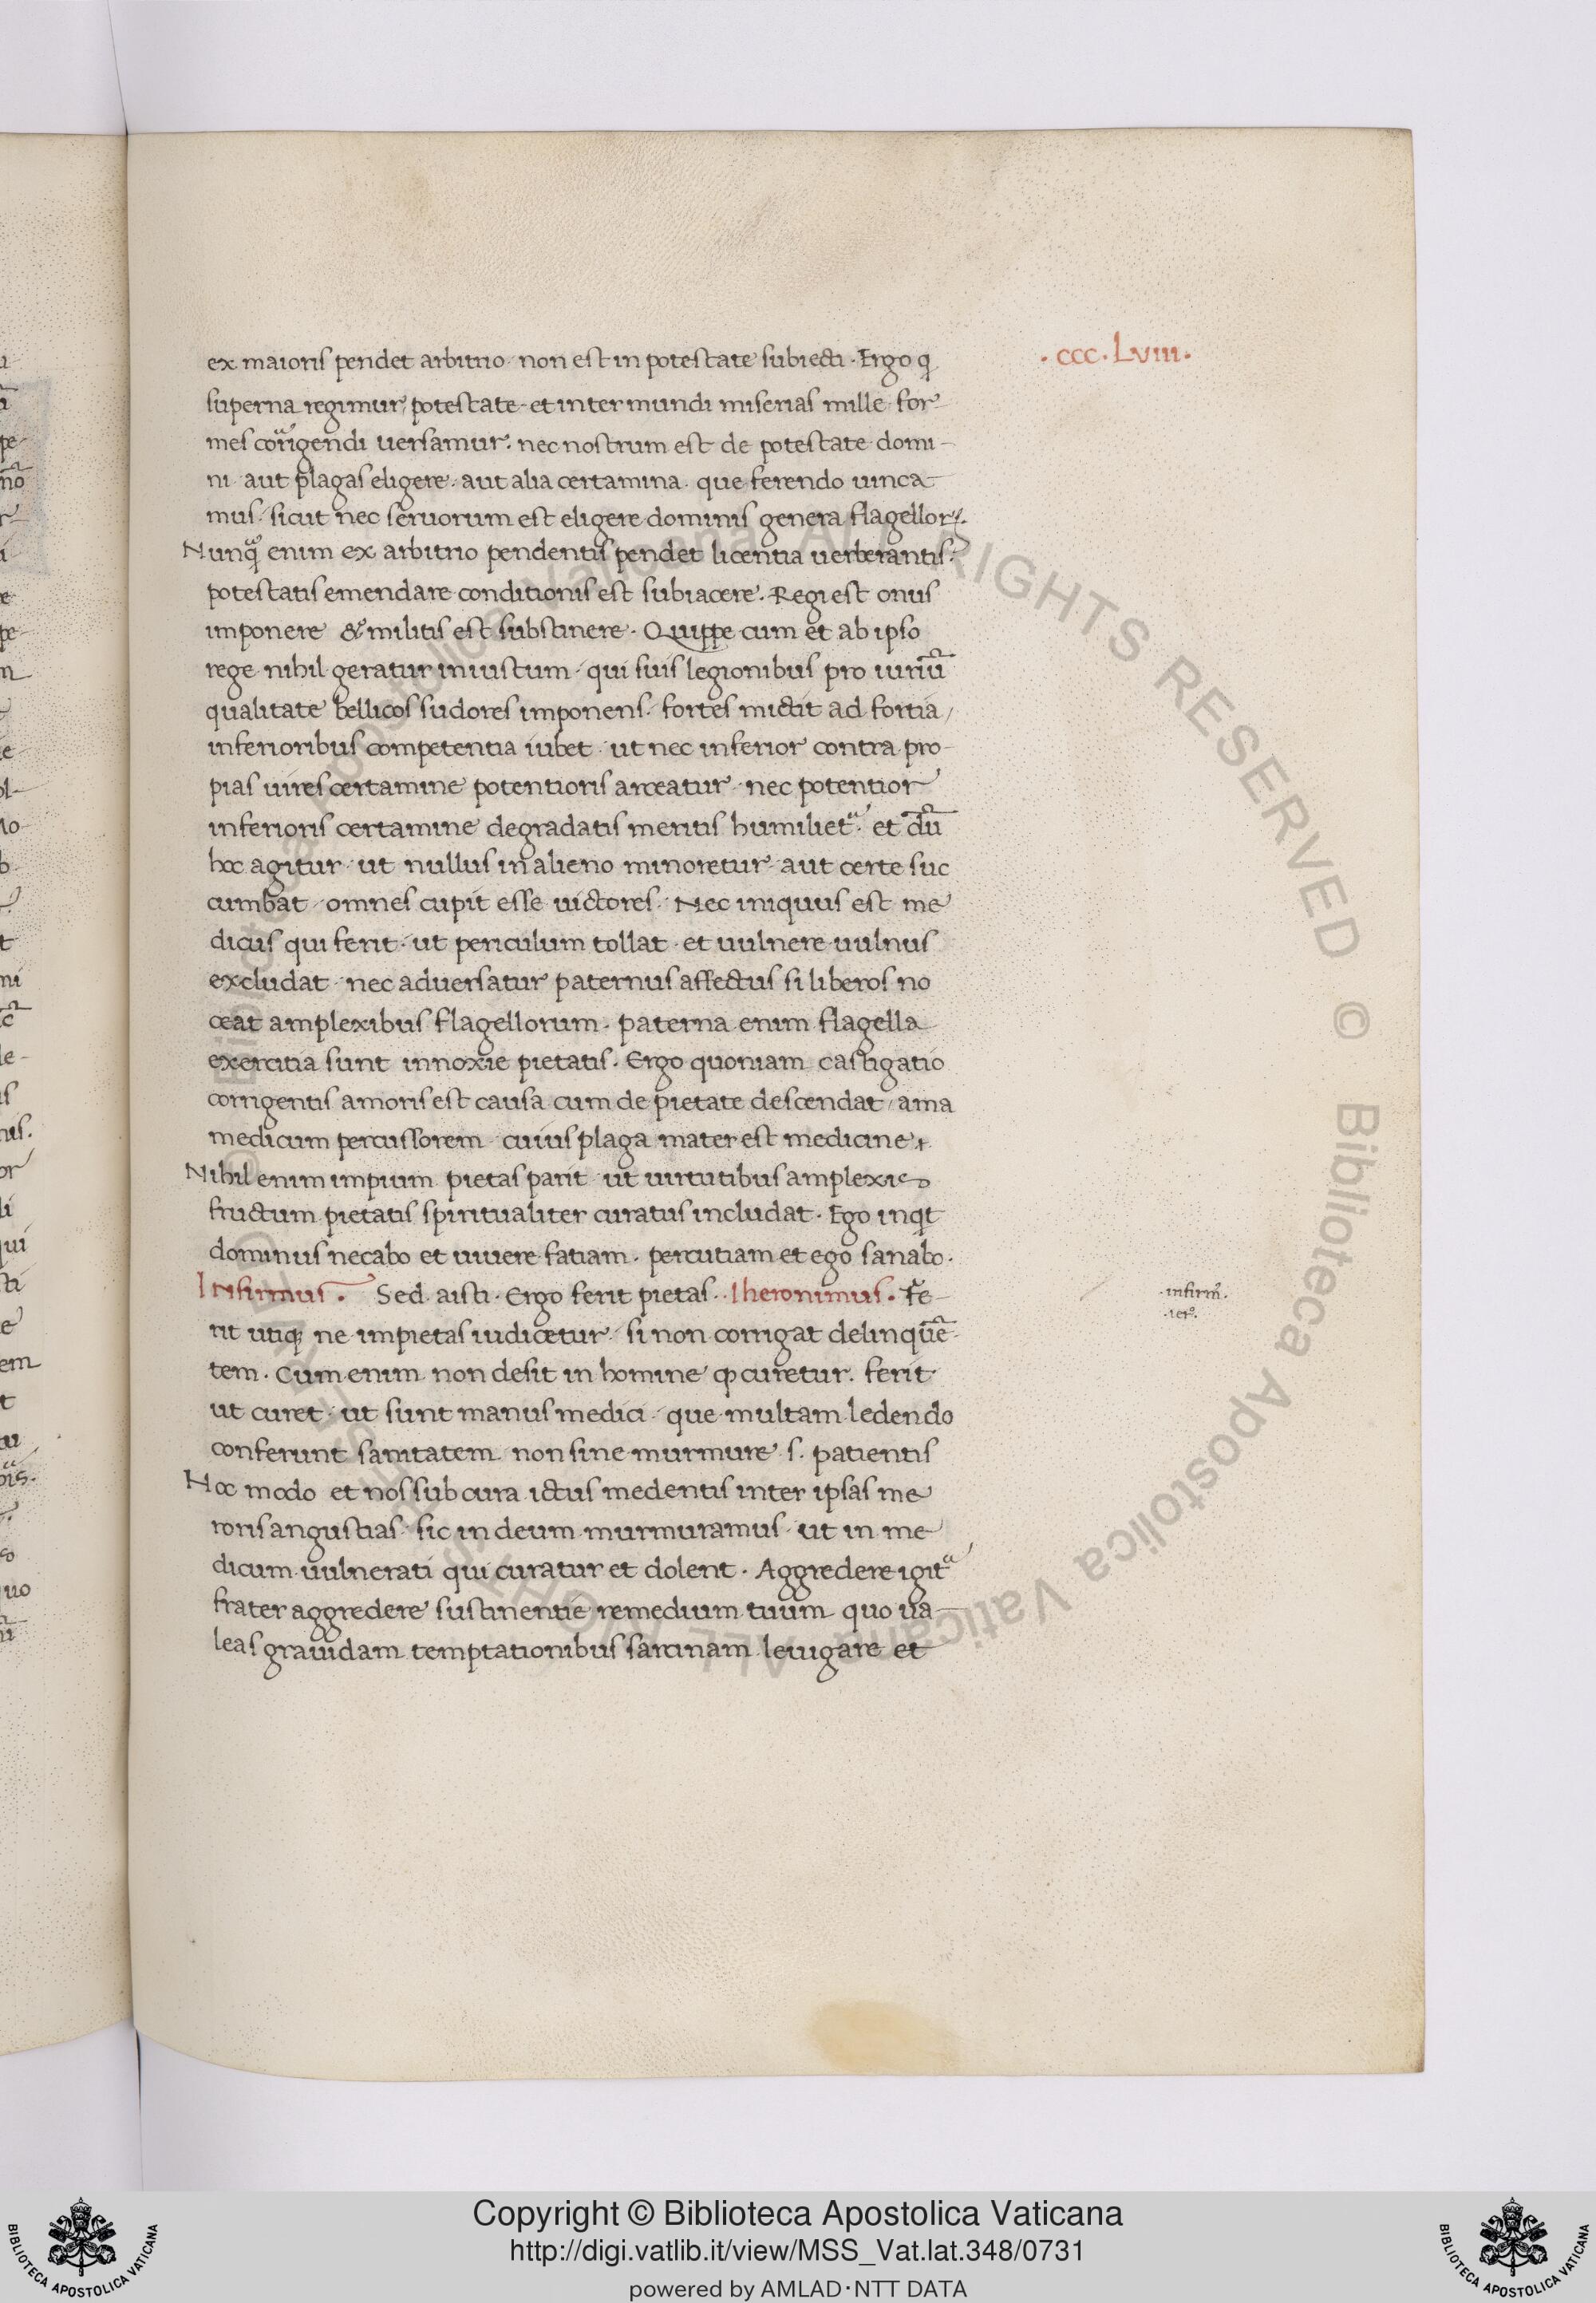 .ccc.Lviii.
ex maioris pendet arbitrio · non est in potestate subiecti · Ergo q
superna regimur, potestate · et inter mundi miserias mille for-
mes corrigendi uersamur. nec nostrum est de potestate domi-
ni · aut plagas eligere · aut alia certamina · que ferendo uinca
mus · sicut nec seruorum est eligere dominis genera flagelloꝝ.
Nunq̃ enim ex arbitrio pendentis pendet licentia uerberantis.
potestatis emendare conditionis est subiacere. Regi est onus
imponere & militis est substinere. Quippe cum et ab ipso
rege nihil geratur iniustum · qui suis legionibus pro uiriū
qualitate bellicos sudores imponens · fortes mictit ad fortia,
inferioribus competentia iubet · ut nec inferior contra pro-
pias uires certamine potentioris arceatur · nec potentior
inferioris certamine degradatis meritis humilietᵃ · et dū
hoc agitur · ut nullus in alieno minoretur · aut certe suc
cumbat · omnes cupit esse uictores. Nec iniquus est me
dicus qui ferit · ut periculum tollat · et uulnere uulnus
excludat · nec aduersatur paternus affectus si liberos no
ceat amplexibus flagellorum. paterna enim flagella
exercitia sunt innoxie pietatis. Ergo quoniam castigatio
corrigentis amoris est causa cum de pietate descendat, ama
medicum percussorem · cuius plaga mater est medicine.
Nihil enim impium pietas parit · ut uirtutibus amplexis
fructum pietatis spiritualiter curatus includat. Ego inqt
dominus necabo et uiuere fatiam. percutiam et ego sanabo.
Infirmus. Sed aisti. Ergo ferit pietas. Iheronimus. Fe-
rit utiqꝫ ne impietas iudicetur · si non corrigat delinquē-
tem. Cum enim non desit in homine ꝙ curetur. ferit
ut curet · ut sunt manus medici · que multam ledendo
conferunt sanitatem non sine murmure · s. patientis
Hoc modo et nos sub cura ictus medentis inter ipsas me
roris angustias · sic in deum murmuramus · ut in me
dicum uulnerati qui curatur et dolent. Aggredere igitᵃ
frater aggredere sustinentie remedium tuum quo ua-
leas grauidam temptationibus sarcinam leuigare et
.infirm̃.
.ier̃.
Copyright © Biblioteca Apostolica Vaticana
http://digi.vatlib.it/view/MSS_Vat.lat.348/0731
powered by AMLAD·NTT DATA